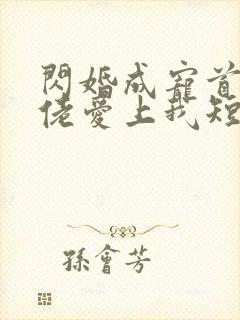 閃婚成寵首
佬愛上我短
孫會芳